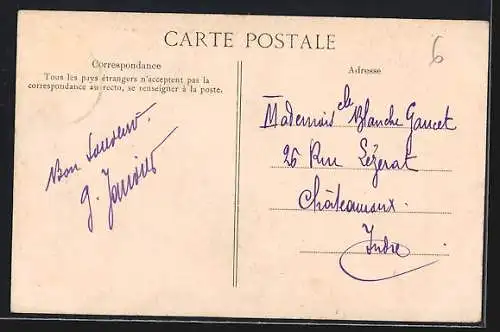 CARTE POSTALE
6
Correspondance
Tous les pays étrangers n'acceptent pas la
correspondance au recto, se renseigner à la poste.
Bon Souvenir.
G.
Adresse
Mademoiselle Blanche
26 Rue
Châteauroux.
Indre